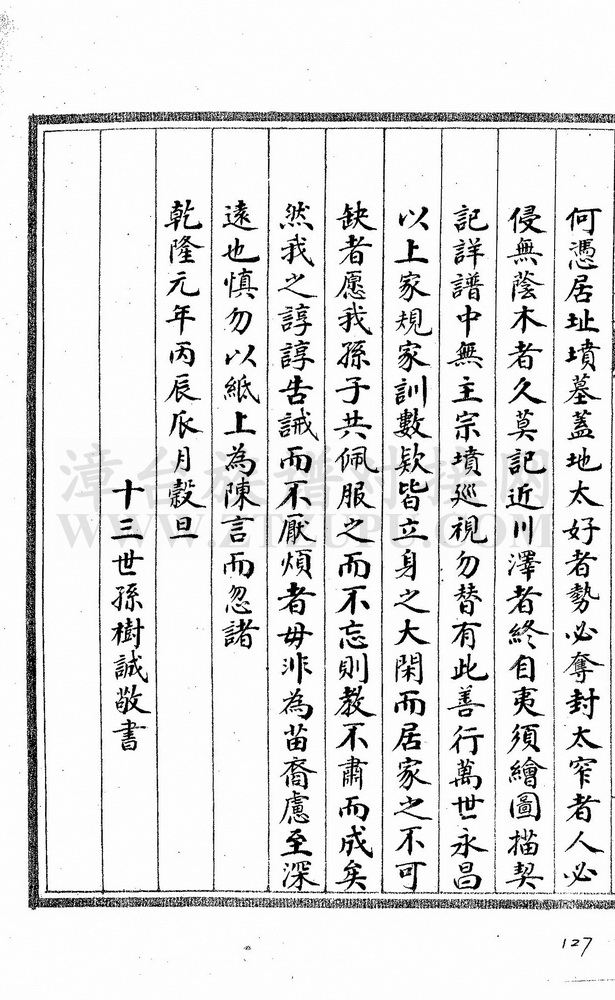 何憑居址墳墓蓋地太好者勢必奪封太窄者人必
侵無蔭木者久莫記近川澤者終自夷須繪圖描契
記詳譜中無主宗墳巡視勿替有此善行萬世永昌
以上家規家訓數欵皆立身之大閑而居家之不可
缺者愿我孫子共佩服之而不忘則教不肅而成矣
然我之諄諄告誡而不厭煩者毋非為苗裔慮至深
遠也慎勿以紙上為陳言而忽諸
乾隆元年丙辰𠂢月穀旦
十三世孫樹誠敬書
漳台族谱对接网
127